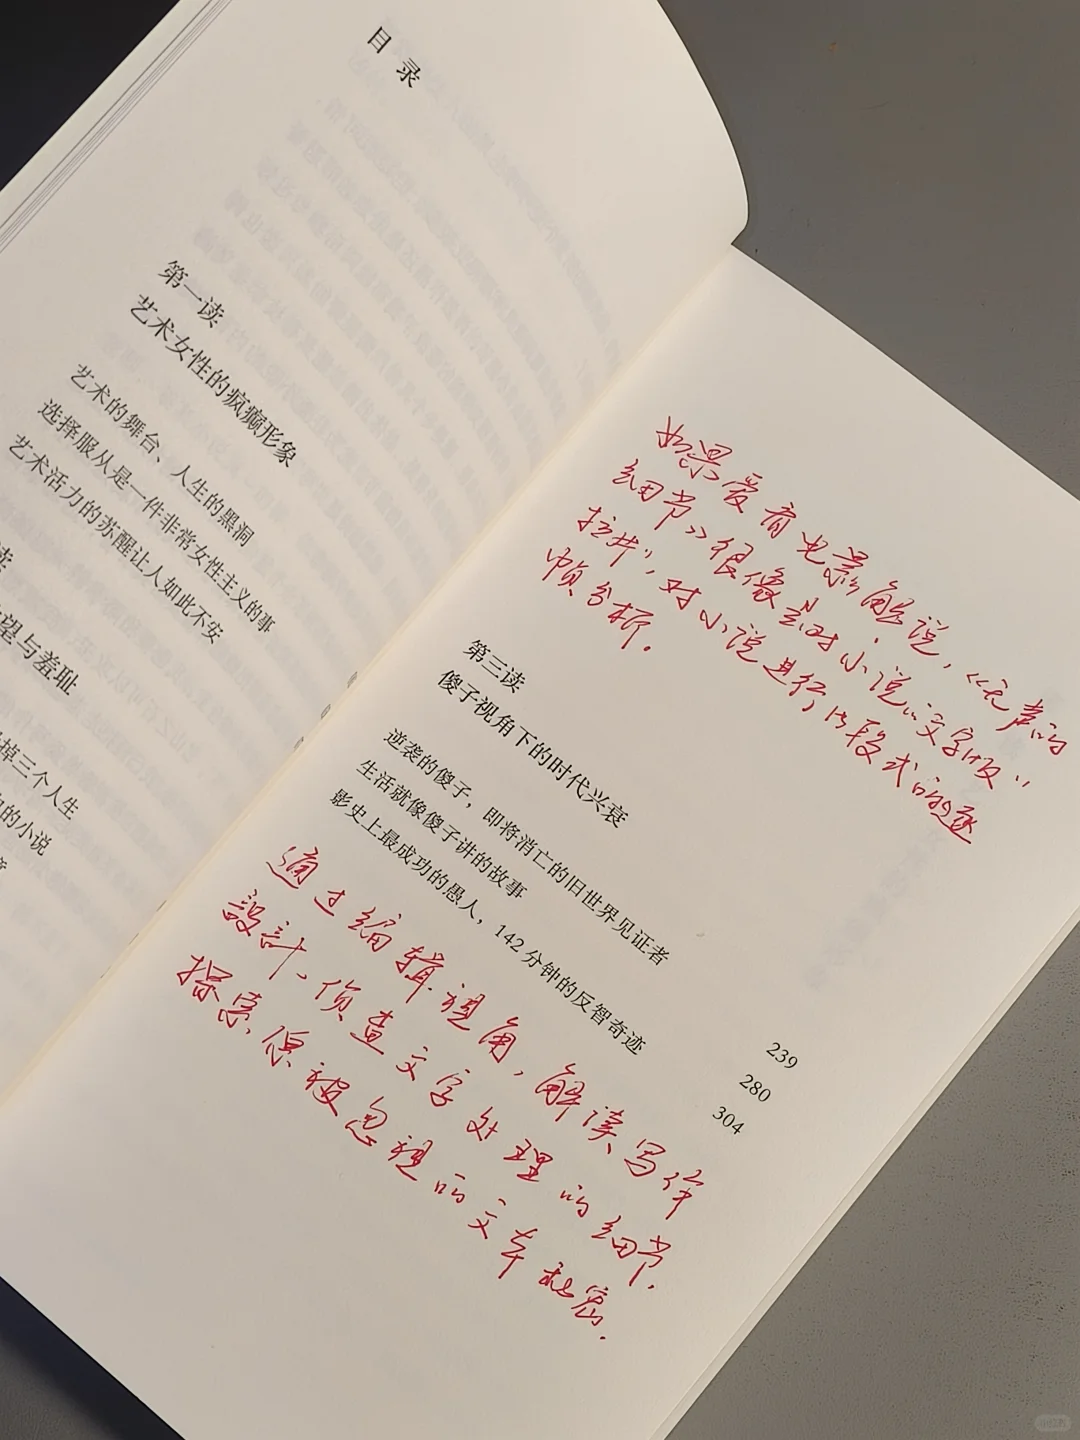 目录
第一读
艺术女性的疯癫形象
艺术的舞台、人生的黑洞
选择服从是一件非常女性主义的事
艺术活力的苏醒让人如此不安
读
望与羞耻
掉三个人生
的小说
如果爱看电影解说，《无声的
细节》很像是对小说的文字版“
拉片”，对小说进行片段式的逐
帧分析。
第三读
傻子视角下的时代兴衰
逆袭的傻子，即将消亡的旧世界见证者 239
生活就像傻子讲的故事 280
影史上最成功的愚人，142分钟的反智奇迹 304
通过编辑视角，解读写作
設計、侦查文字处理的细节，
探索原被忽视的文本秘密。